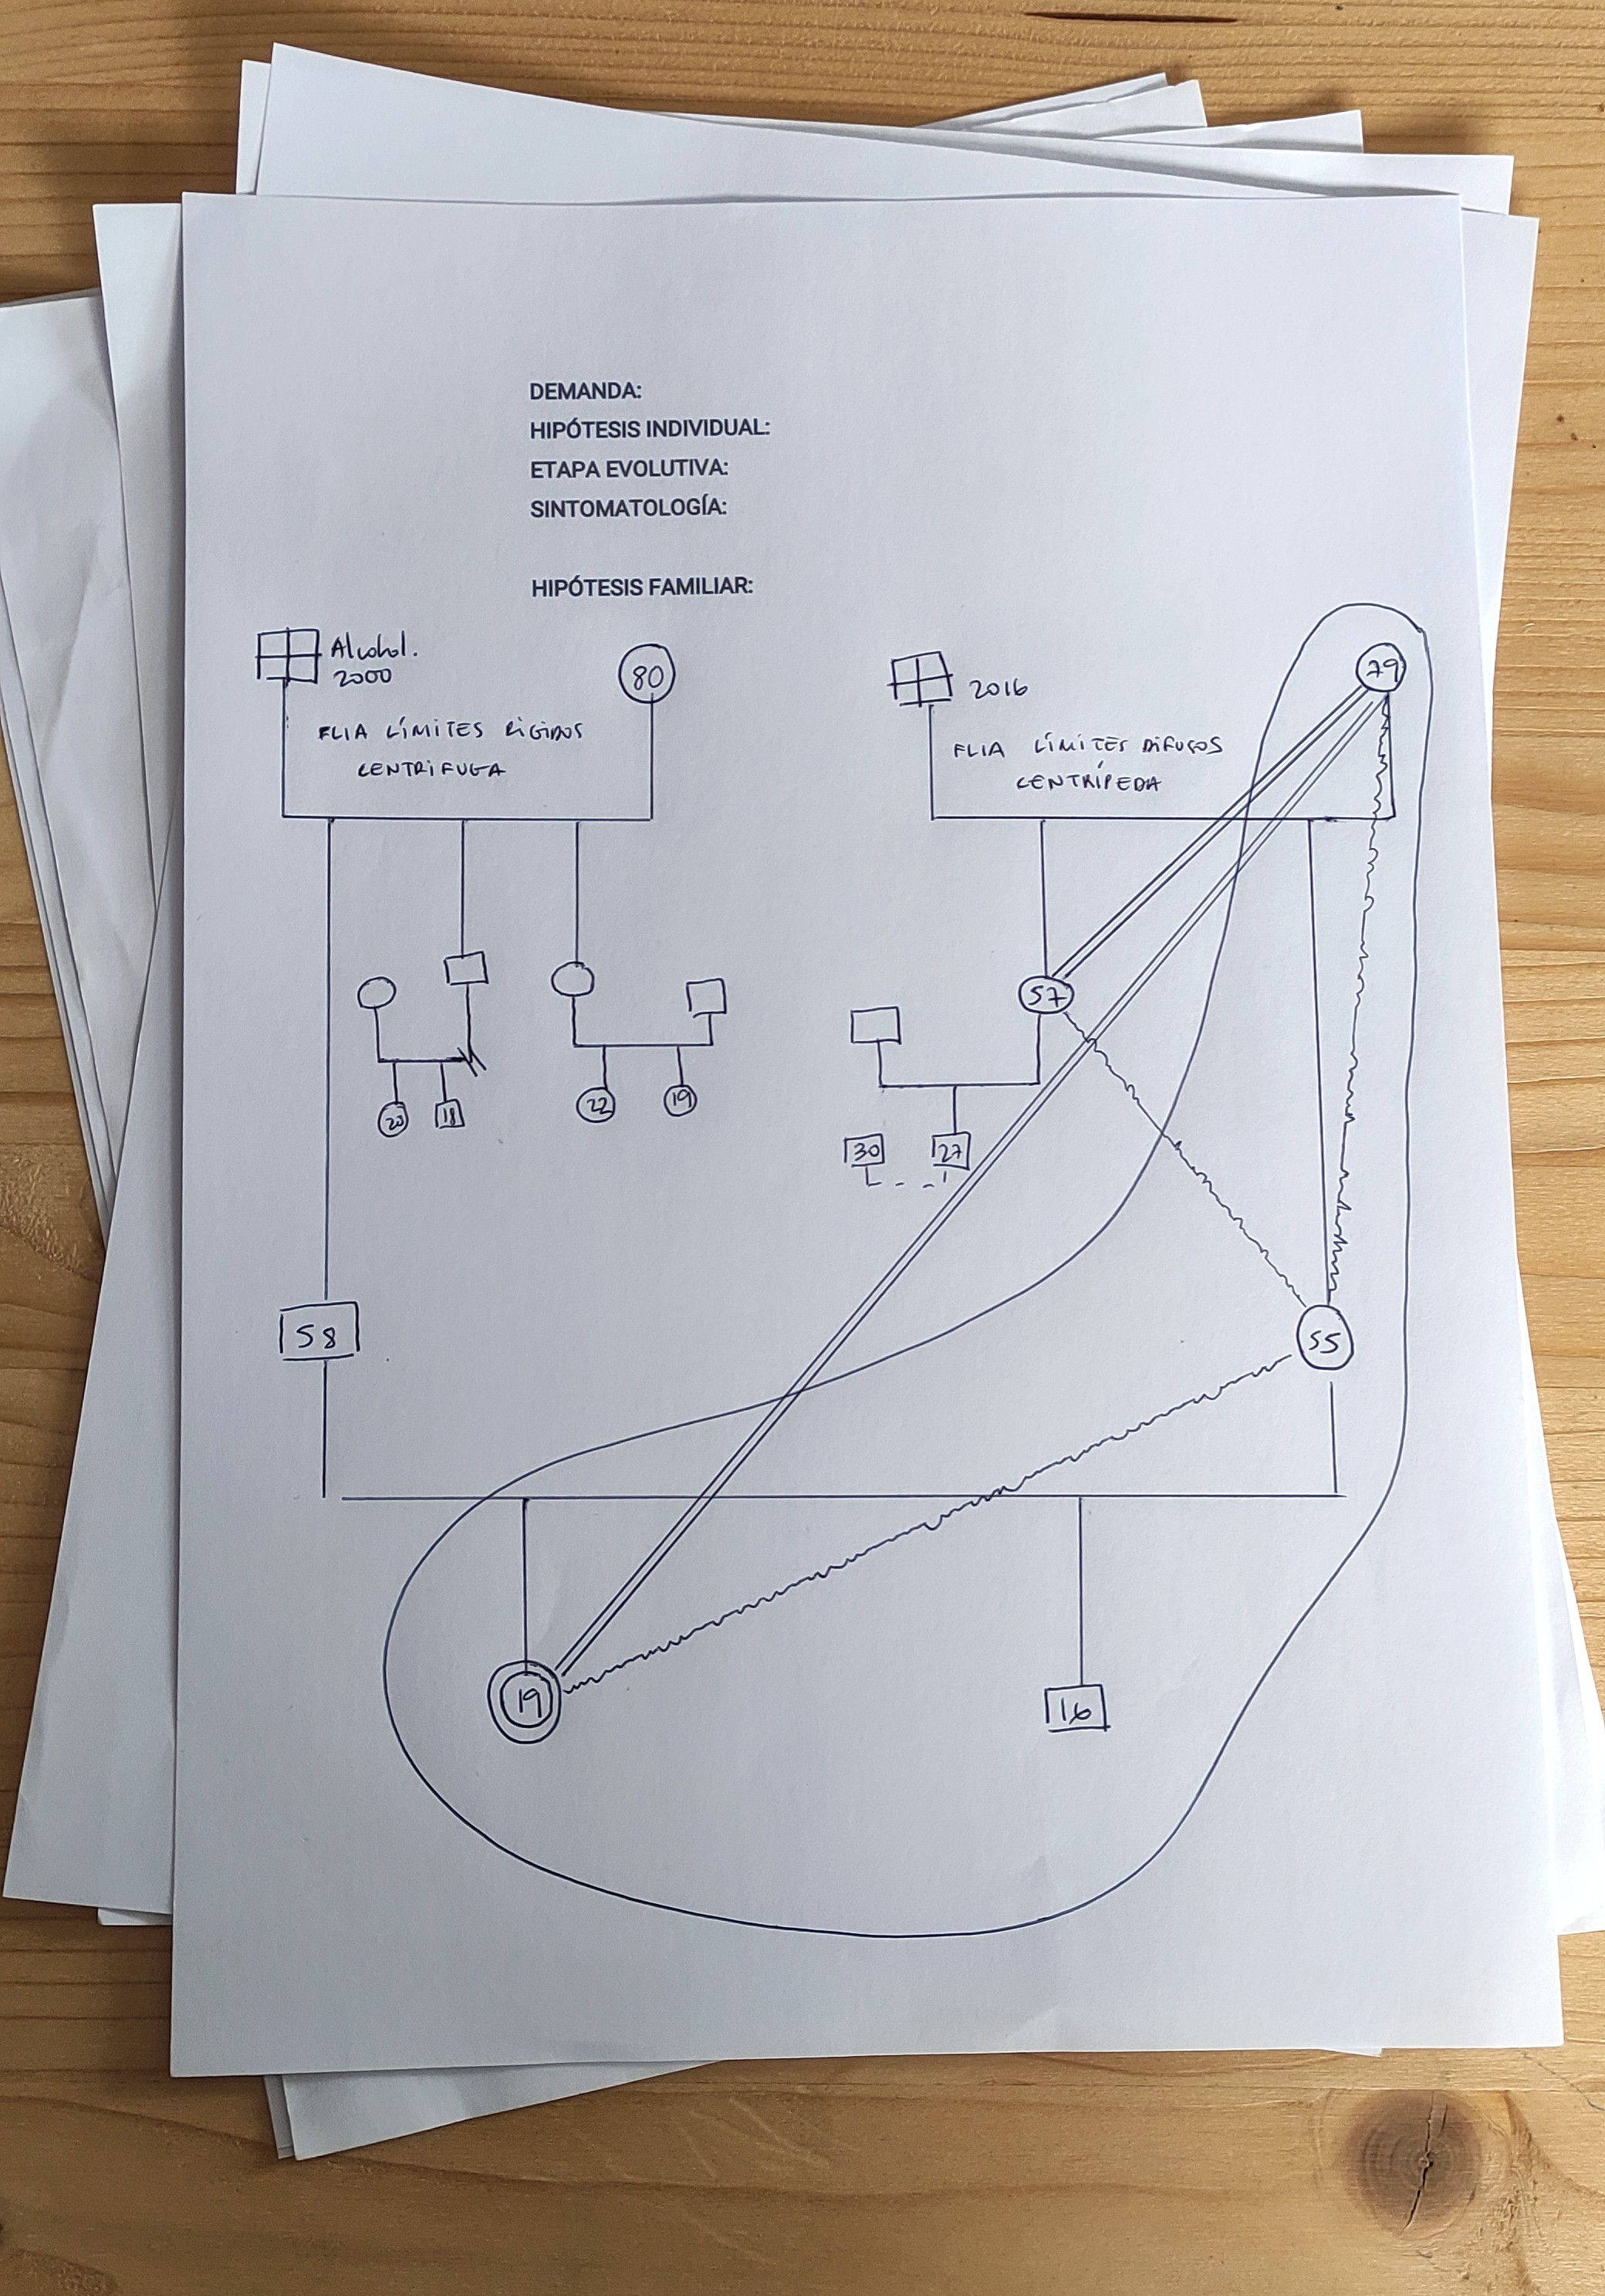 DEMANDA:
HIPÓTESIS INDIVIDUAL:
ETAPA EVOLUTIVA:
SINTOMATOLOGÍA:
HIPÓTESIS FAMILIAR:
Alcohol.
2000
80
2016
79
FLIA LÍMITES RIGIDOS
CENTRIFUGA
FLIA LÍMITES DIFUSOS
CENTRÍPEDA
57
20
18
22
19
30
27
58
55
19
16